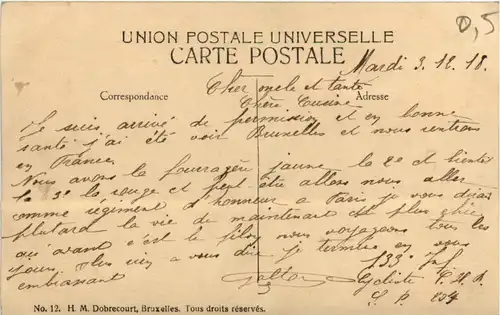 0,5
UNION POSTALE UNIVERSELLE
CARTE POSTALE
Mardi 3.12.18.
Cher oncle et tante
Correspondance Adresse
Chère Cusine
Je suis arrivé de permission et en bonne
santé j'ai été voir Bruxelles et nous rentrons
en France.
Nous avons la fouragère jaune la 2e et bientot
la 3e la rouge et peut être allons nous aller
comme régiment d'honneur a Paris je vous dirais
plutard la vie de maintenant est plus chic
qu'avant c'est le filon nous voyageons tous les
jours Plus rien a vous dire je termine en vous
embrassant
133e Inf
Cycliste C.H.R.
S.P. 204
No. 12. H. M. Dobrecourt, Bruxelles. Tous droits réservés.